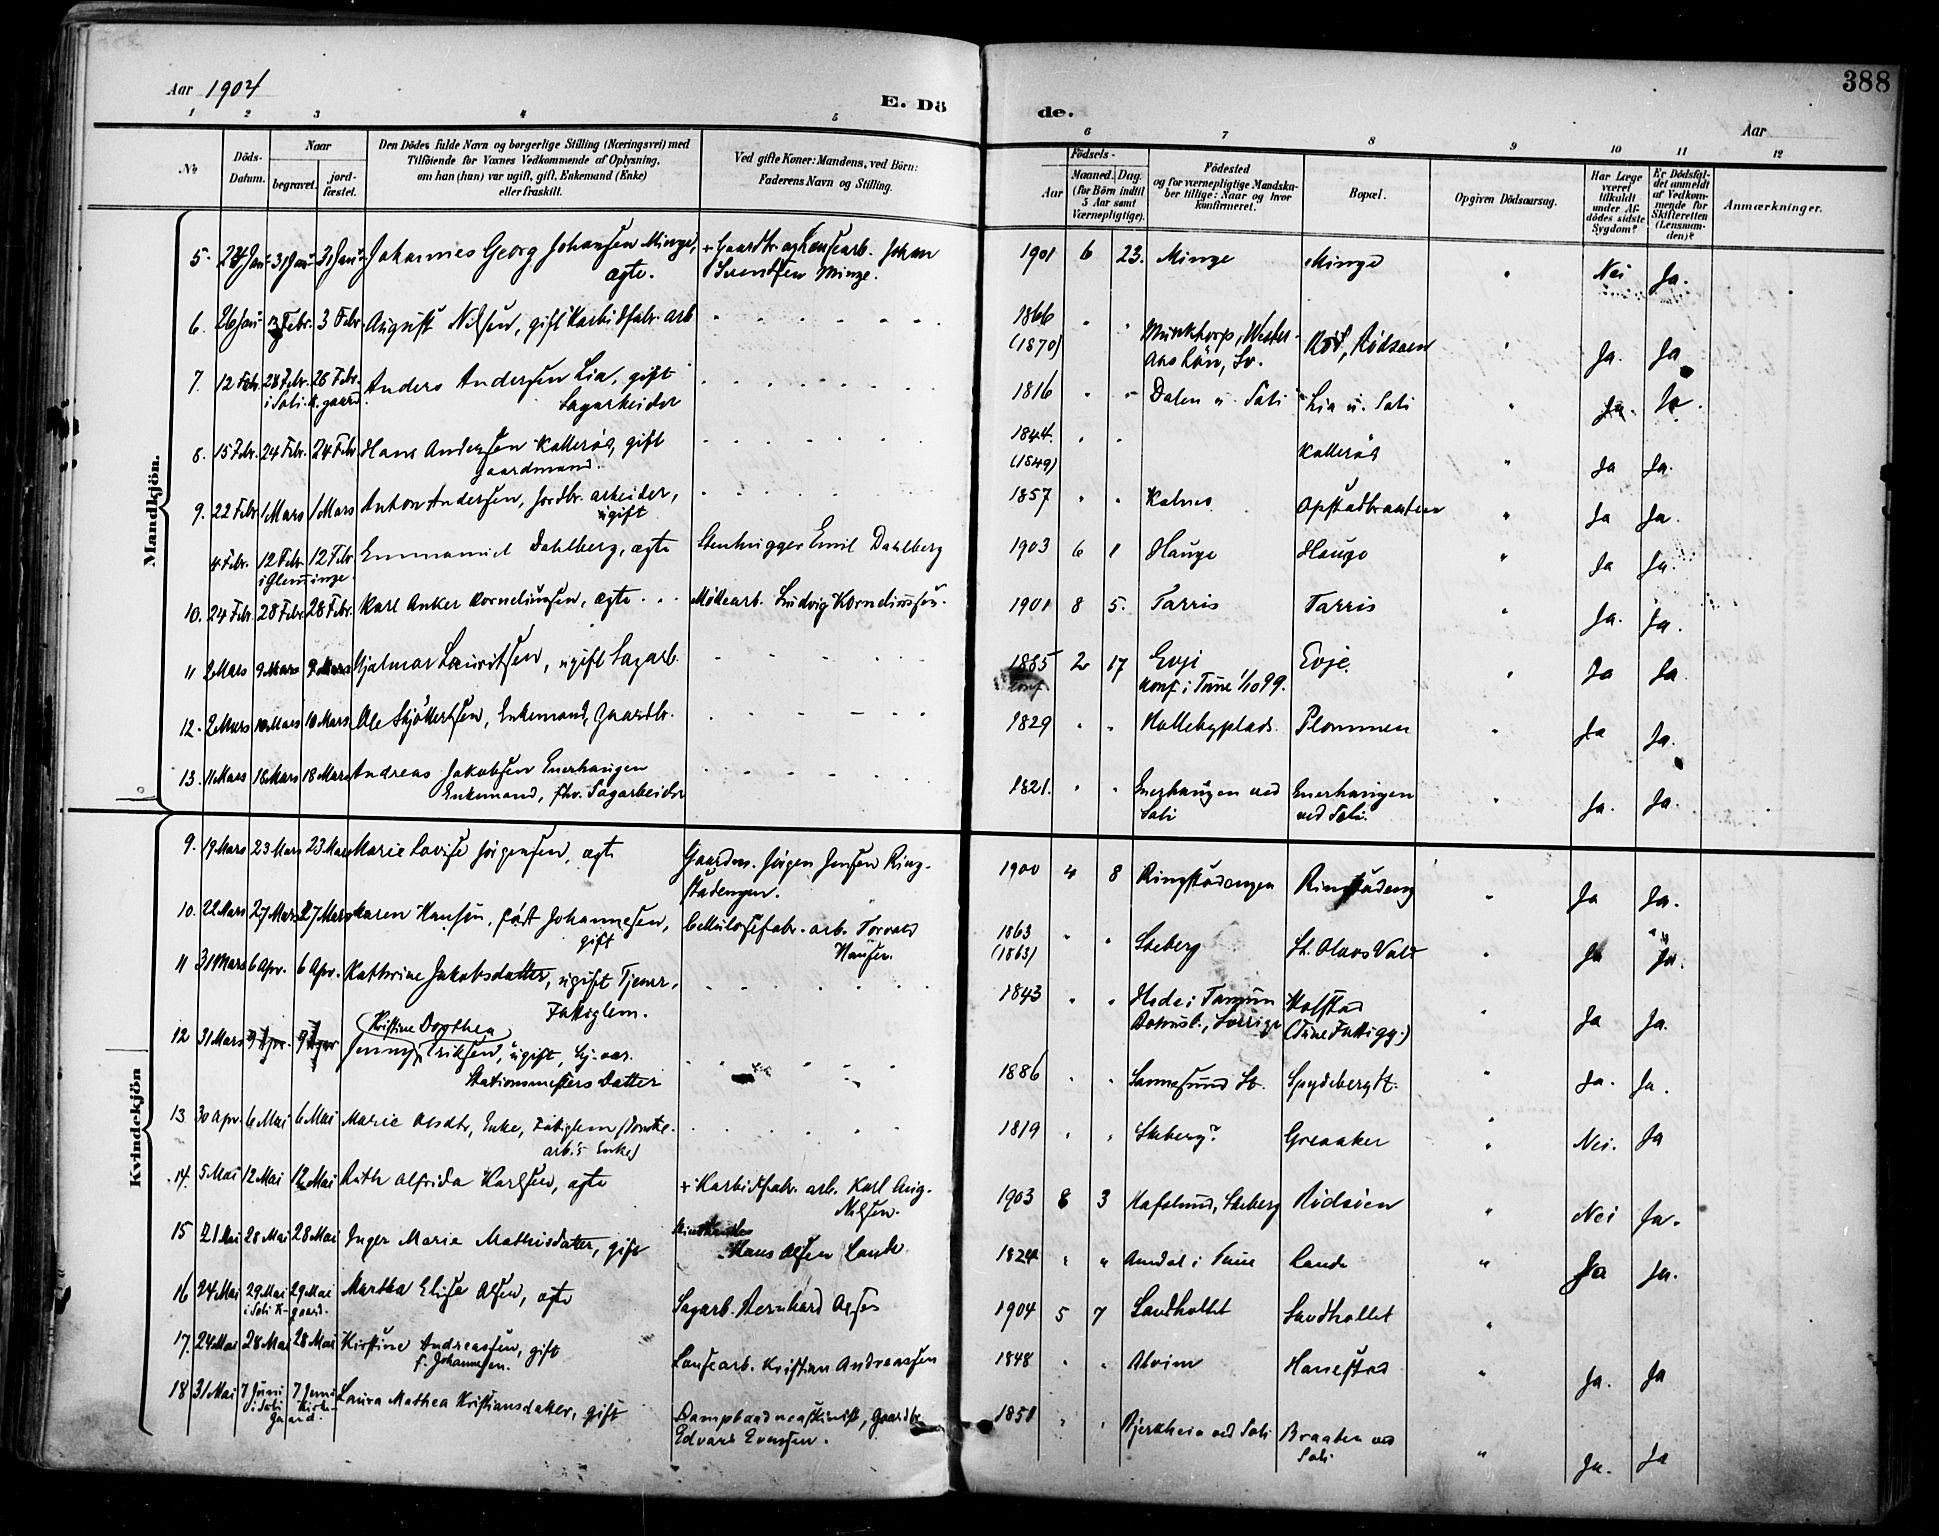 Aar 1904
E. Dö
de.
Aar
388
1 2 3 4 5 6 7 8 9 10 11 12
No
Döds-
Datum.
Naar
begravet.
jord-
fæstet.
Den Dödes fulde Navn og borgerlige Stilling (Næringsvei) med
Tilföiende for Voxnes Vedkommende af Oplysning,
om han (hun) var ugift, gift, Enkemand (Enke)
eller fraskilt.
Ved gifte Koner: Mandens, ved Börn:
Faderens Navn og Stilling.
Födsels-
Aar
Maaned. Dag.
(for Börn indtil
5 Aar samt
Værnepligtige).
Födested
og for værnepligtige Mandska-
ber tillige: Naar og hvor
konfirmeret.
Bopæl.
Opgiven Dödsaarsag.
Har Læge
været
tilkaldt
under Af-
dödes sidste
Sygdom?
Er Dödsfal-
det anmeldt
af Vedkom-
mende for
Skifteretten
(Lensman-
den)?
Anmærkninger.
Mandkjön.
5. 31 Jan 31 Jan Johannes Georg Johansen Minge, + Gaardbr. og Johan 1901 6 23. Minge Minge " Nei Ja.
ægte. Svendsen Minge.
6. 26 Jan 3 Febr. 3 Febr August Nilsen, gift Karbidfabr. arb 1866 Ja. Ja
(1870) Munktorp, Wester- Rödsöen
Aas Län, Sv.
7. 12 Febr. 28 Febr. 28 Febr. Anders Andersen Lia, gift 1816 Dalen v. Soli Lia v. Soli Ja. Ja.
i Soli K. gaard. Sagarbeider
8. 15 Febr. 24 Febr. 24 Febr Hans Andersen Kallerød, gift 1844. Kallerød " Ja Ja.
gaardmand. (1849)
9. 22 Febr 1 Mars 1 Mars Anton Andersen, Jordbr. arbeider, 1857 Kalnes Opstadbraaten " Ja Ja.
ugift
4 Febr. 12 Febr 12 Febr Emmanuel Dahlberg, ægte Stenhugger Emil Dahlberg 1903 6 1 Hauge Hauge " Ja Ja.
i Glemminge.
10. 24 Febr 28 Febr 28 Febr. Karl Anker Korneliussen, ægte Møllearb. Ludvig Korneliussen. 1901 8 5. Tarris Tarris Ja. Ja.
11 2 Mars 9 Mars 9 Mars Hjalmar Lauritsen, ugift Sagarb. 1885 2 17 Evje Evje. Ja Ja.
konf. Konf. i Tune 1/10 99.
12. 2 Mars 10 Mars 10 Mars Ole Skjöllertsen, Enkemand, Gaardbr. 1829 Hallebyplads. Plommen Ja Ja.
13. 11 Mars 18 Mars 18 Mars Andreas Jakobsen Enerhaugen 1821. Enerhaugen ved Enerhaugen Ja. Ja.
Enkemand, fhv. Sagarbeider Soli ved Soli.
Kvindekjön
9. 19 Mars 23 Mars 23 Mars Marie Lovise Jörgensen, ægte Gaardm. Jörgen Jensen Ring- 1900 4 8 Ringstadengen Ringstadeng Ja Ja.
stadengen.
10. 22 Mars 27 Mars 27 Mars Karen Hansen, født Johannesen, Cellulosefabr. arb. Torvald 1863 Skeberg St. Olavs Vold Ja Ja.
gift Hansen. (1863)
11 31 Mars 6 Apr. 6 Apr. Kathrine Jakobsdatter, ugift Tjener, 1843 Hede i Tanum Holstad Ja Ja.
Fattiglem. Bohusl., Sverrige (Tune Fattigg.)
12 31 Mars 9 Apr. 9 Apr Kristine Dorthea
Jenny Eriksen, ugift, 1886 Sannesund St. Spydeberg St. Ja. Ja.
Stationsmesters Datter
13 30 Apr. 6 Mai 6 Mai Marie Olsdtr, Enke, Fattiglem 1819 Skeberg? Greaaker " Nei. Ja
arb.s Enke)
14. 5 Mai 12 Mai 12 Mai Ruth Alfrida Karlsen, ægte + Karbidfabr. arb. Karl Aug. 1903 8 3 Hafslund, Skeberg Rödsöen " Nei Ja.
Nilsen.
15 21 Mai 28 Mai 28 Mai Inger Marie Mathisdatter, gift Hans Olsen Lande 1824 " " Aondal i Tune Lande " Ja Ja.
16 24 Mai 29 Mai 29 Mai Martha Elise Olsen, ægte Sagarb. Bernhard Olsen 1904 5 7 Sandhollet Sandhollet "
i Soli K- gaard.
17. 24 Mai 28 Mai 28 Mai Kirstine Andreassen, gift Lousearb. Kristian Andreassen 1848 Alvim Hanestad Ja. Ja
f. Johannesen.
18 31 Mai 7 Juni 7 Juni Laura Mathea Kristiansdatter, gift Dampbaadmaskinist, Gaardbr. 1851 Bjerkheia ved Soli Braaten ved " Ja. Ja
i Soli Kirke- Edvard Evensen. Soli
Gaard.